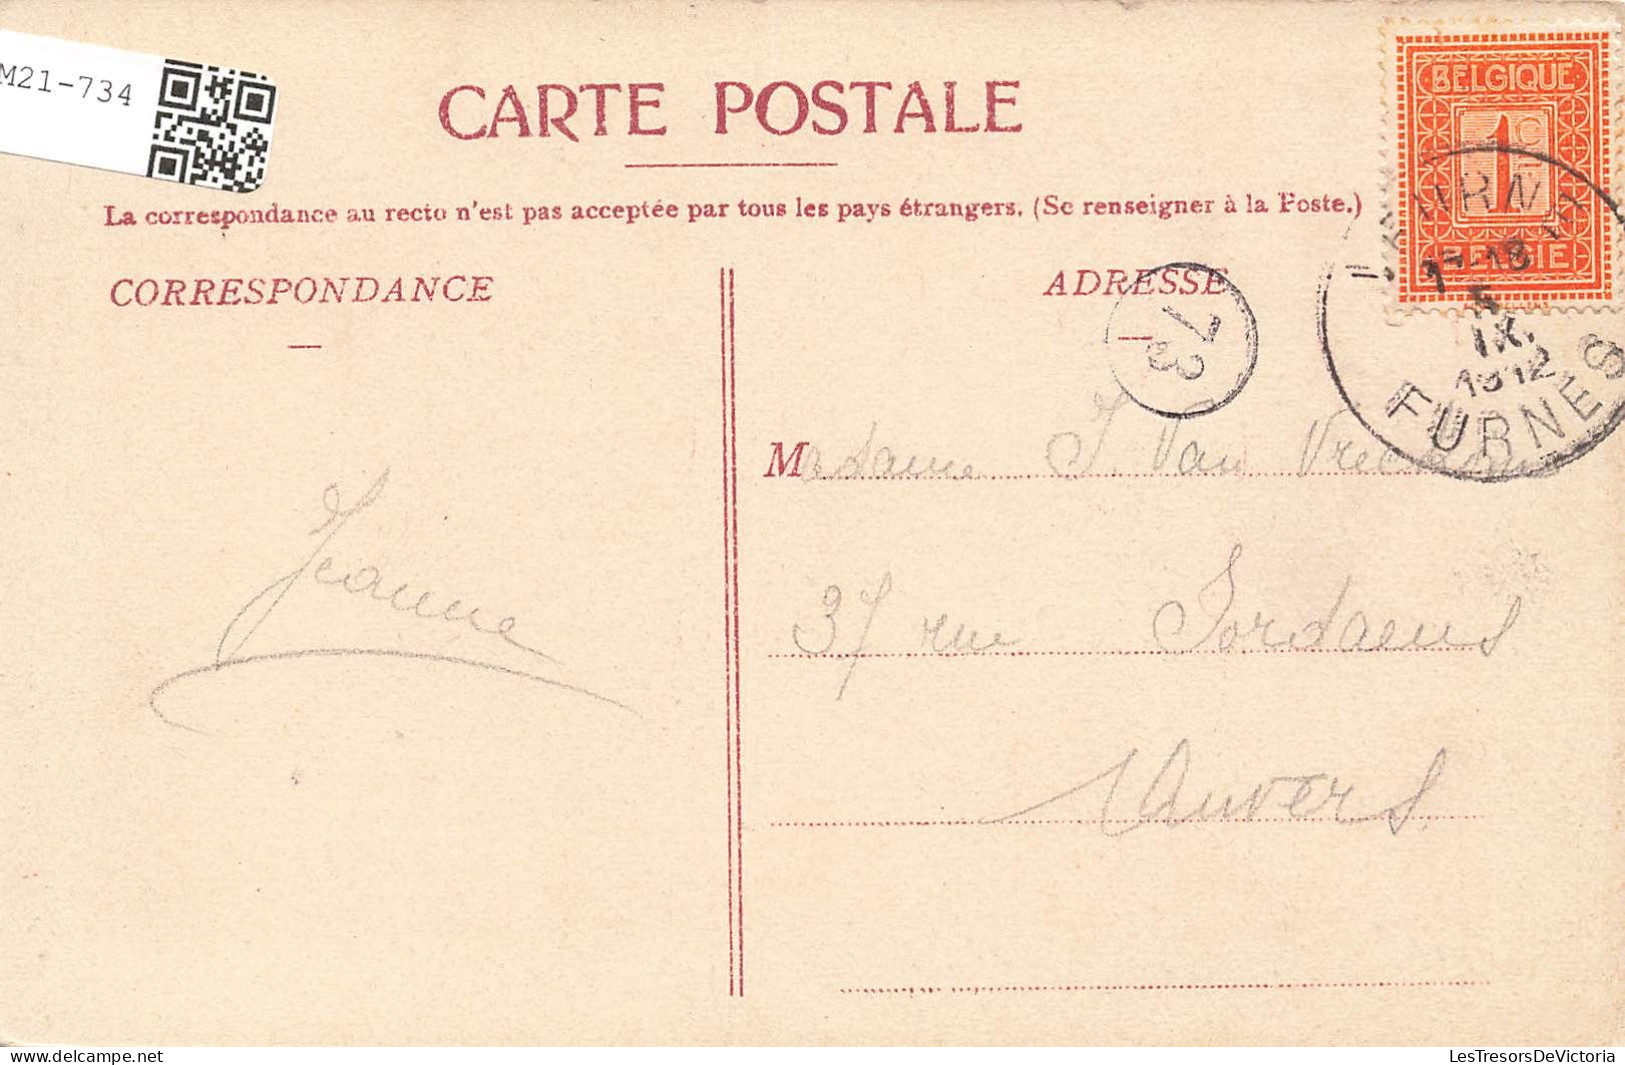 M21-734
CARTE POSTALE
La correspondance au recto n'est pas acceptée par tous les pays étrangers. (Se renseigner à la Poste.)
BELGIQUE
1
BELGIË
VEURNE
17-18
5
IX
1912
FURNES
CORRESPONDANCE
ADRESSE
73
Madame J. Van
37 rue Jordaens
Anvers
Jeanne
M21-734
LesTresorsDeVictoria